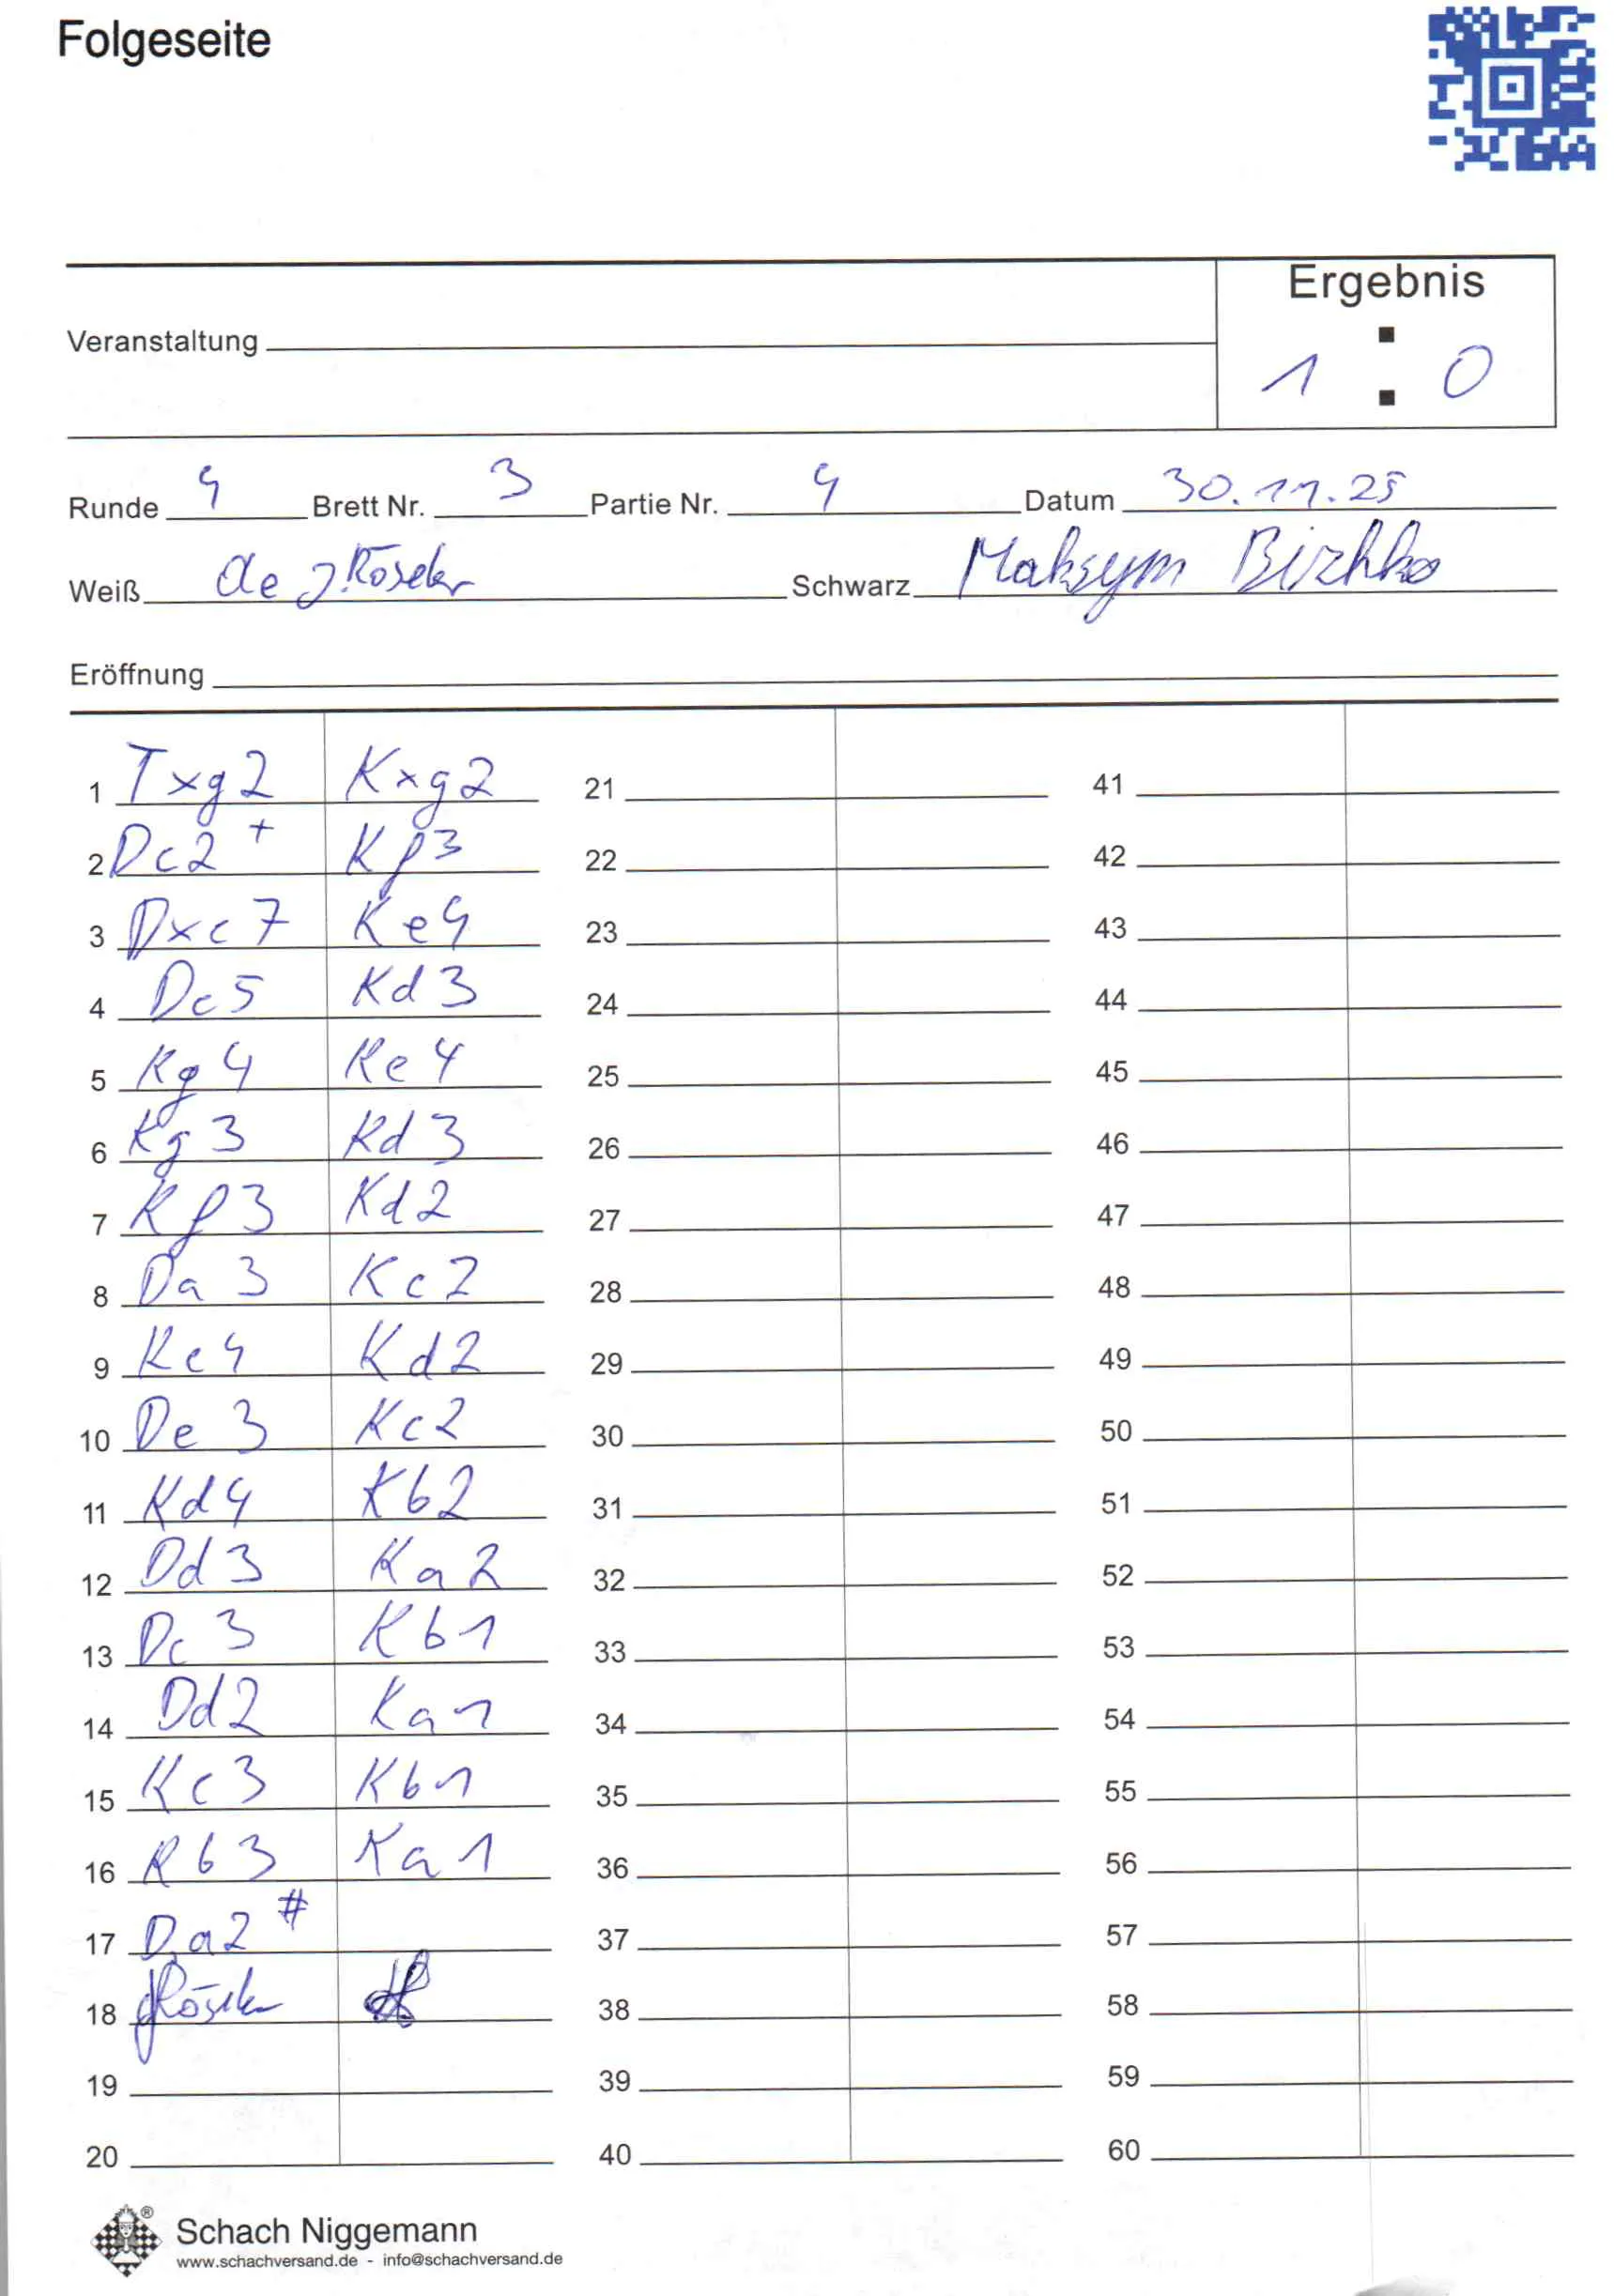 Folgeseite
Ergebnis
Veranstaltung
1 : 0
Runde 4 Brett Nr. 3 Partie Nr. 4 Datum 30.11.25
Weiß de J. Röseler Schwarz Maksym Bizhko
Eröffnung
1 Txg2 Kxg2 21 41
2 Dc2+ Kf3 22 42
3 Dxc7 Ke4 23 43
4 Dc5 Kd3 24 44
5 Kg4 Ke4 25 45
6 Kg3 Kd3 26 46
7 Kf3 Kd2 27 47
8 Da3 Kc2 28 48
9 Ke4 Kd2 29 49
10 De3 Kc2 30 50
11 Kd4 Kb2 31 51
12 Dd3 Ka2 32 52
13 Dc3 Kb1 33 53
14 Dd2 Ka1 34 54
15 Kc3 Kb1 35 55
16 Kb3 Ka1 36 56
17 Da2# 37 57
18 38 58
19 39 59
20 40 60
Schach Niggemann
www.schachversand.de - info@schachversand.de